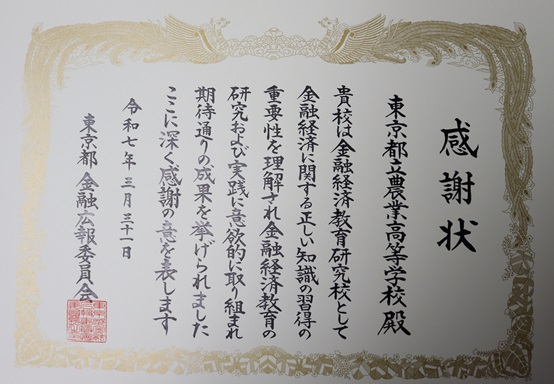 感謝状
東京都立農業高等学校 殿
貴校は金融経済教育研究校として
金融経済に関する正しい知識の習得の
重要性を理解され金融経済教育の
研究および実践に意欲的に取り組まれ
期待通りの成果を挙げられました
ここに深く感謝の意を表します
令和七年三月三十一日
東京都金融広報委員会